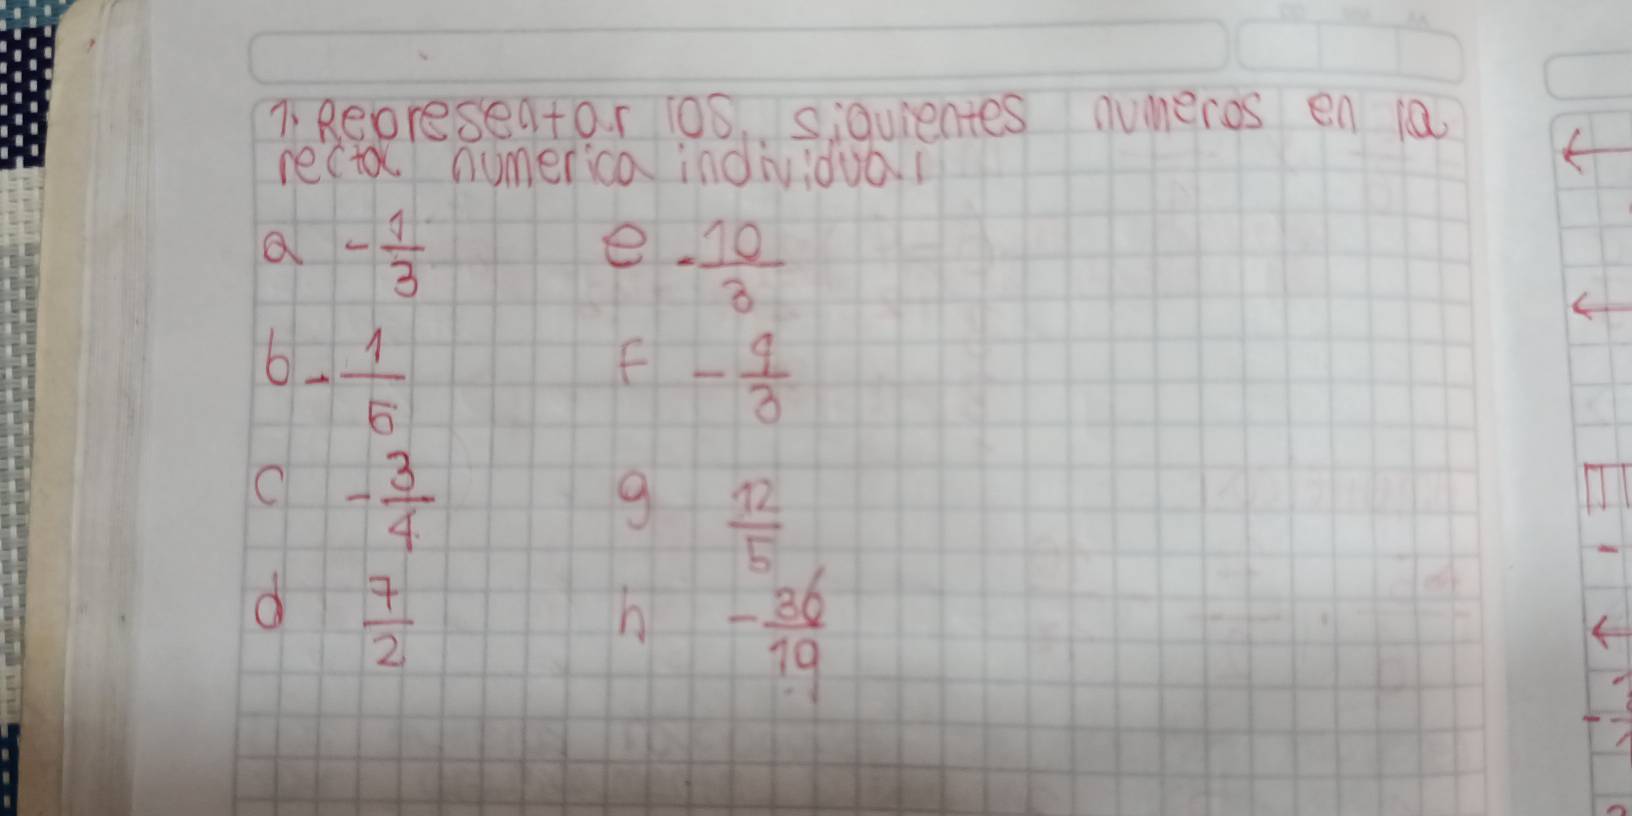 1. Representar los siguientes numeros en la
recta numerica individual
a -1/3 e -10/3
b -1/5 F -9/3
c -3/4 g 12/5
d 7/2 h -36/19